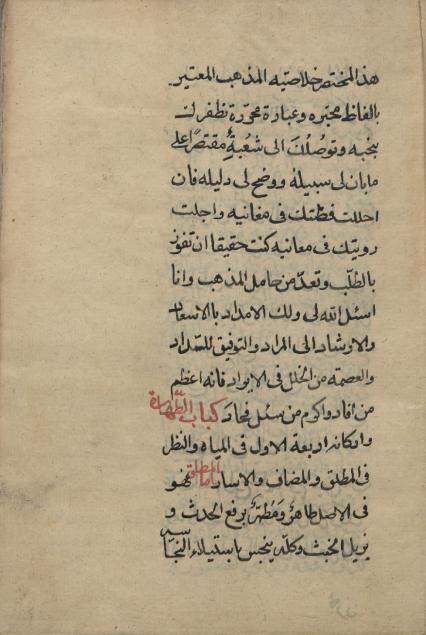 هذا المختصر خلاصته المذهب المعتبر
بالفاظ محبره وعبارة محررة تظفرك
بنخبه وتوصلك الى شعبه مقتصرا على
ما بان لى سبيله ووضح لى دليله فان
احللت فطنتك فى مغانيه واجلت
رويتك فى معانيه كنت حقيقا ان تفوز
بالطلب وتعد من حامل المذهب وانا
اسئل الله لى ولك الامداد بالاسعاد
والارشاد الى المراد والتوفيق للسداد
والعصمة من الخلل فى الايراد فانه اعظم
من افاد واكرم من سئل فجاد كتاب الطهارة
واركانه اربعة الاول فى المياه والنظر
فى المطلق والمضاف والاسار اما المطلق فهو
فى الاصل طاهر ومطهر يرفع الحدث و
يزيل الخبث وكله ينجس باستيلاء النجاسة